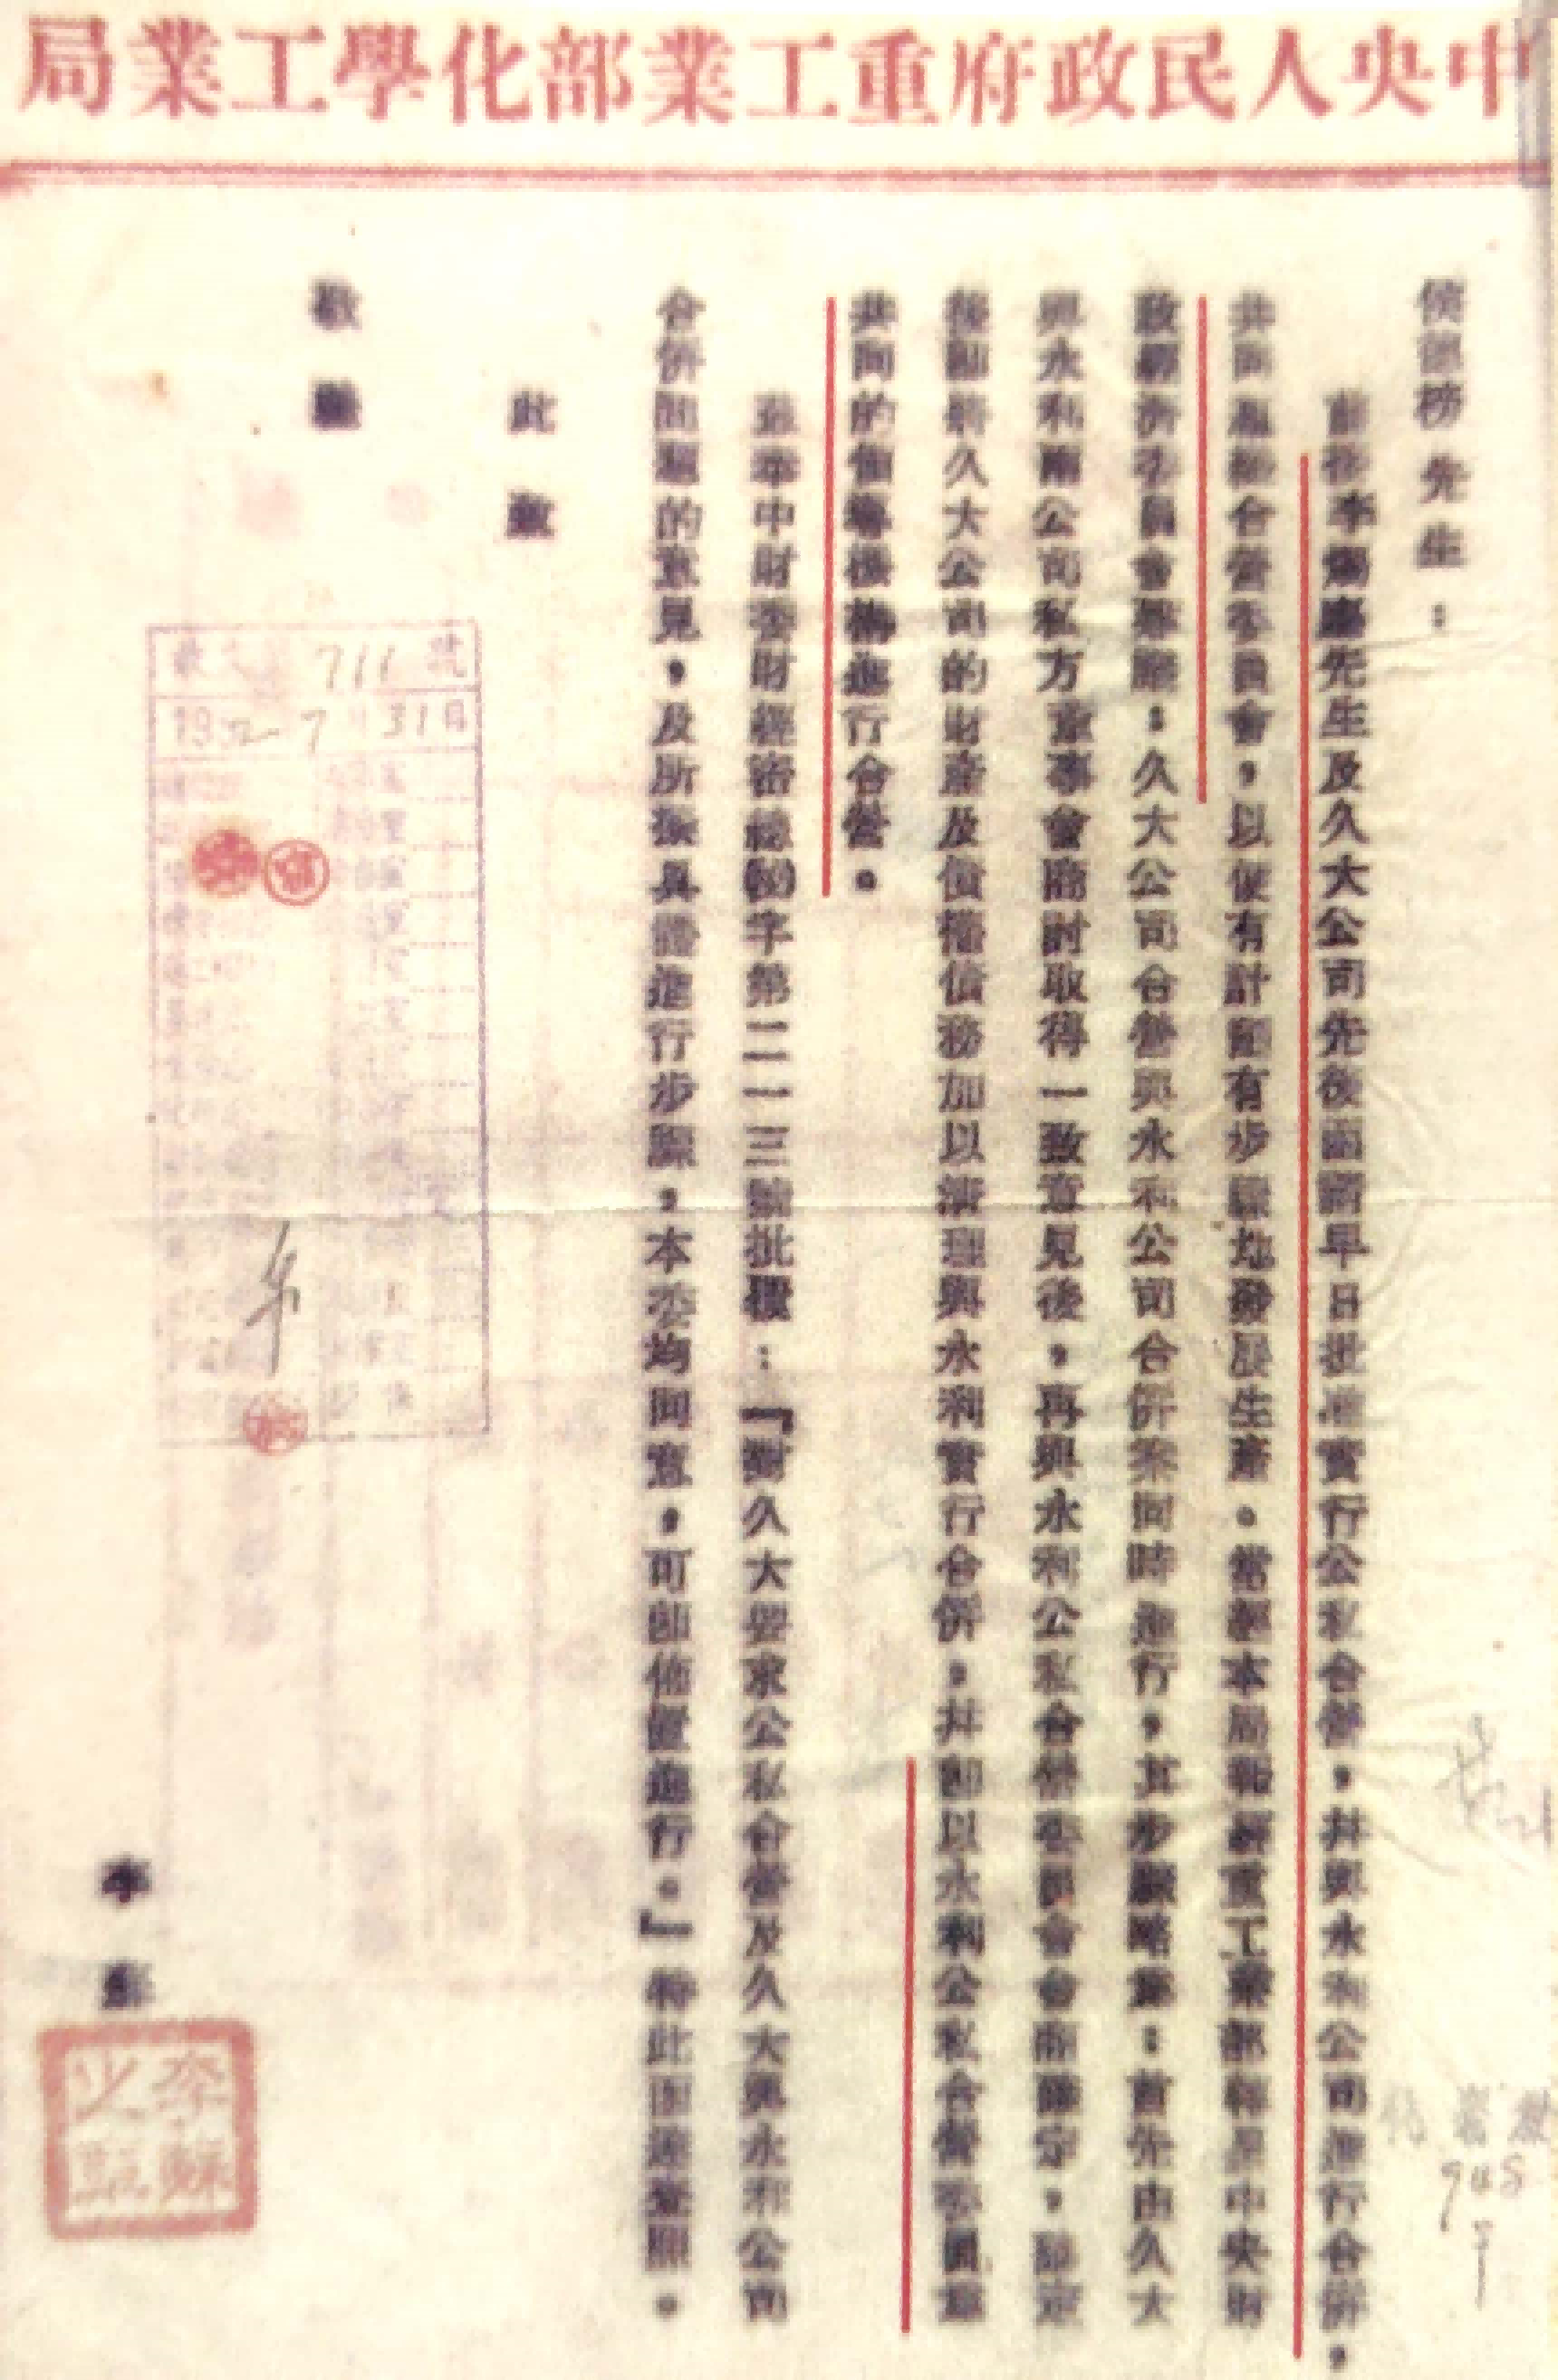 中央人民政府重工業部化學工業局
侯德榜先生：
前你李燭塵先生及久大公司先後函請早日批准實行公私合營，并與永利公司進行合併，
共同組織合營委員會，以便有計劃有步驟地發展生產。當經本局報經重工業部轉呈中央財
政經濟委員會摹：久大公司合營與永利公司合併案同時進行，其步驟略為：首先由久大
與永利兩公司私方董事會商討取得一致意見後，再與永利公私合營委員會會商確定，確定
後即將久大公司的財產及債權債務加以清理與永利實行合併，并即以永利公私合營委員會
共同的領導機構進行合營。
茲奉中財委財經密總(秘)字第二一三號批覆：『對久大要求公私合營及久大與永利公司
合併問題的意見，及所擬具體進行步驟，本委均同意，可即佈置進行。』特此函達查照。
此致
敬禮
李蘇
李蘇之璽
收文 711 號
1952 7月31日